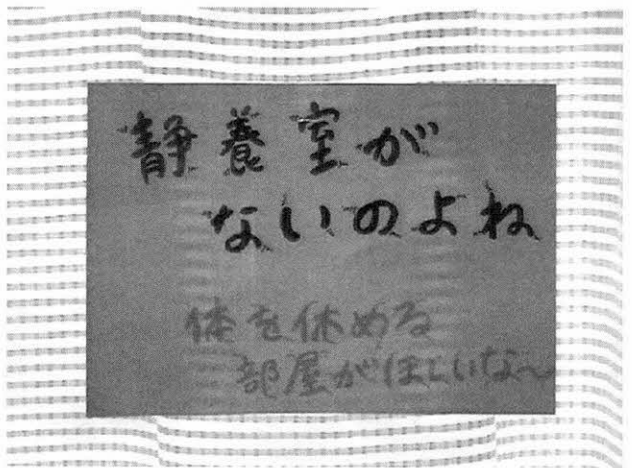 静養室が
ないのよね
体を休める
部屋がほしいな〜